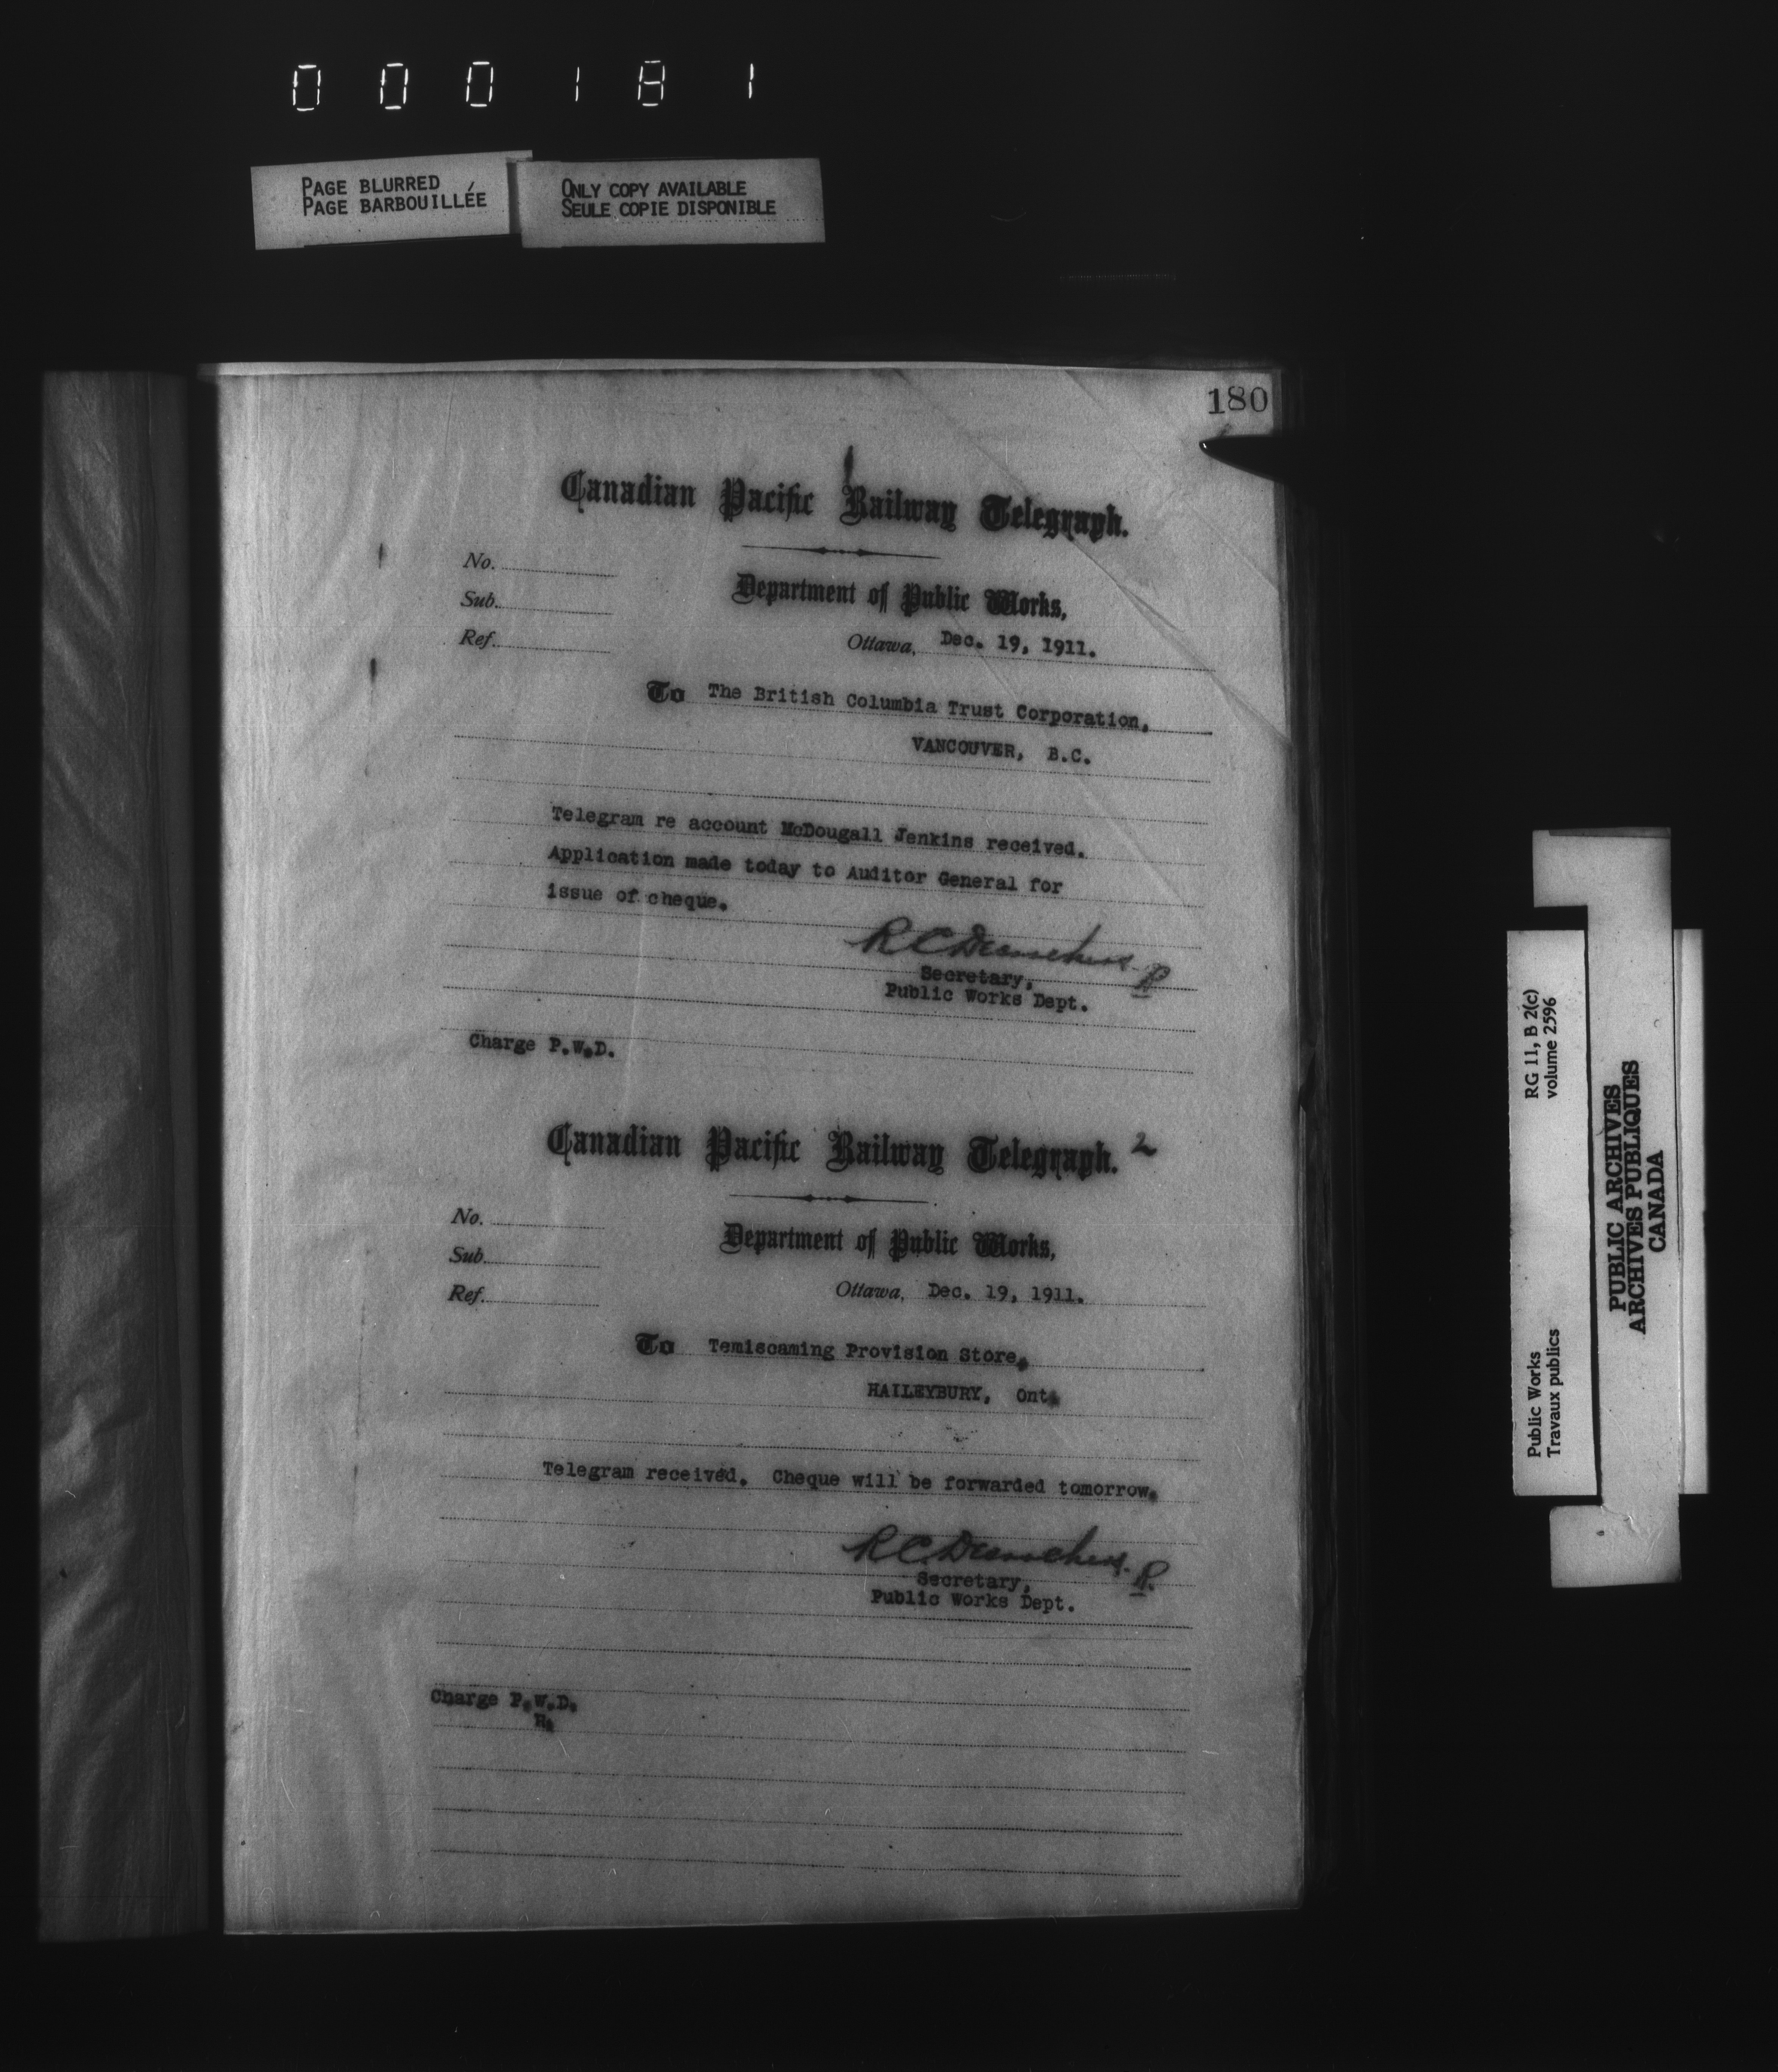 000181
PAGE BLURRED
PAGE BARBOUILLÉE
ONLY COPY AVAILABLE
SEULE COPIE DISPONIBLE
180
1
Canadian Pacific Railway Telegraph.
No.
Department of Public Works,
Sub.
Ref.
Ottawa, Dec. 19, 1911.
To The British Columbia Trust Corporation,
VANCOUVER, B.C.
Telegram re account McDougall Jenkins received.
Application made today to Auditor General for
issue of cheque.
RC Desrochers. R
Secretary,
Public Works Dept.
Charge P.W.D.
Canadian Pacific Railway Telegraph. 2
No.
Department of Public Works,
Sub.
Ref.
Ottawa, Dec. 19, 1911.
To Temiscaming Provision Store,
HAILEYBURY, Ont.
Telegram received. Cheque will be forwarded tomorrow.
RC Desrochers. R.
Secretary,
Public Works Dept.
Charge P.W.D.
H.
Public Works RG 11, B 2(c)
Travaux publics volume 2596
PUBLIC ARCHIVES
ARCHIVES PUBLIQUES
CANADA